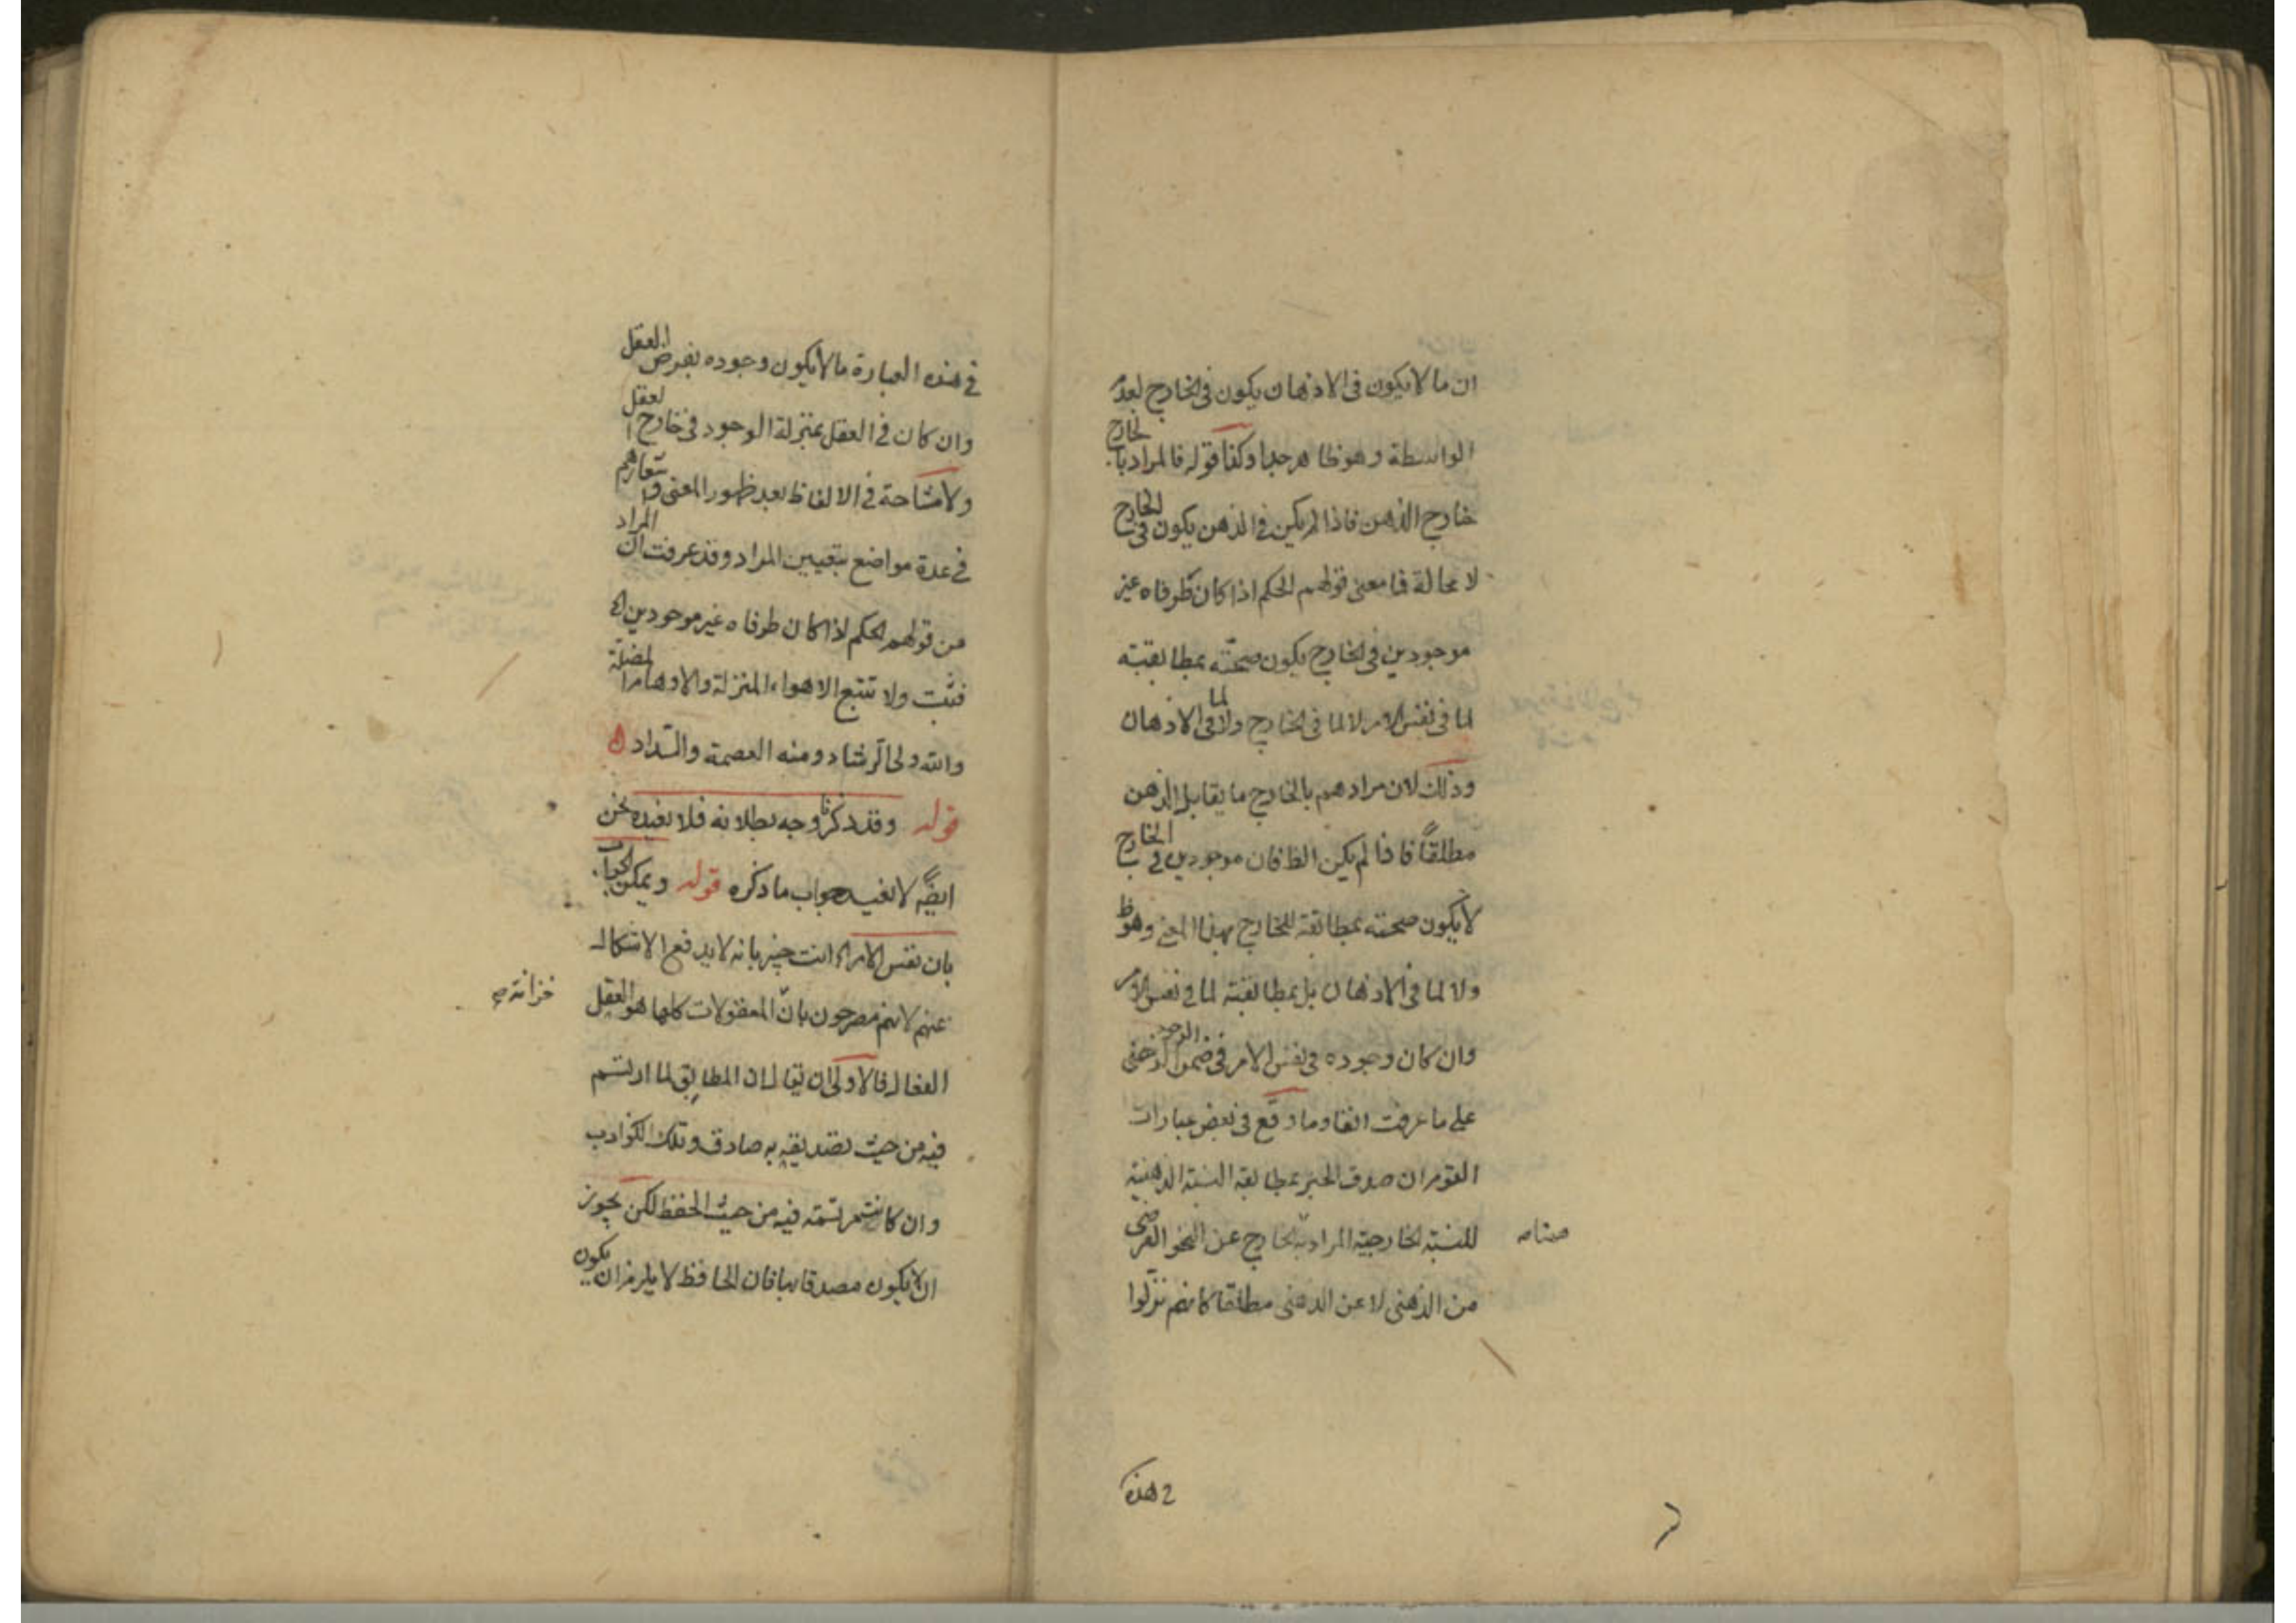 ان ما لا يكون فى الاذهان يكون فى الخارج لعدم
الواسطة وهو ظاهر جدا وكذا قوله فالمراد بالخارج
خارج الذهن فاذا لم يكن فى الذهن يكون فى الخارج
لا محالة فما معنى قولهم الحكم اذا كان طرفاه غير
موجودين فى الخارج يكون صحته بمطابقته
لما فى نفس الامر لا لما فى الخارج ولا لما فى الاذهان
وذلك لان مرادهم بالخارج ما يقابل الذهن
مطلقاً فاذا لم يكن الطرفان موجودين فى الخارج
لا يكون صحته بمطابقة للخارج بهذا المعنى وهو ظ
ولا لما فى الاذهان بل بمطابقته لما فى نفس الامر
وان كان وجوده فى نفس الامر فى ضمن الوجود الذهنى
على ما عرفت انفا وما وقع فى بعض عبارات
القوم ان صدق الخبر بمطابقة النسبة الذهنية
للنسبة الخارجية المراد بالخارج عن النحو الفرضى
من الذهنى لا عن الذهنى مطلقا كانهم نزلوا
هذه
فى هذه العبارة ما لا يكون وجوده بفرض العقل
وان كان فى العقل بمنزلة الوجود فى خارج العقل
ولا مشاحة فى الالفاظ بعد ظهور المعنى و
فى عدة مواضع بتعيين المراد وقد عرفت ان المراد
من قولهم الحكم اذا كان طرفاه غير موجودين الخ
فتثبت ولا تتبع الاهواء المنزلة والاوهام المضلة
والله ولى الرشاد ومنه العصمة والسداد
قوله وقد ذكرنا وجه بطلانه فلا نعيده نحن
ايضاً لا نعيد جواب ما ذكره قوله ويمكن الجواب
بان نفس الامر الخ انت خبير بانه لا يدفع الاشكال
عنهم لانهم مصرحون بانّ المعقولات كلها هو العقل
خزانة
الفعال فالاولى ان يقال ان المطابق لما ارتسم
فيه من حيث تصديقه به صادق وتلك الكواذب
وان كانت مرتسمة فيه من حيث الحفظ لكن يجوز
ان لا يكون مصدقا بها فان الحافظ لا يلزم ان يكون